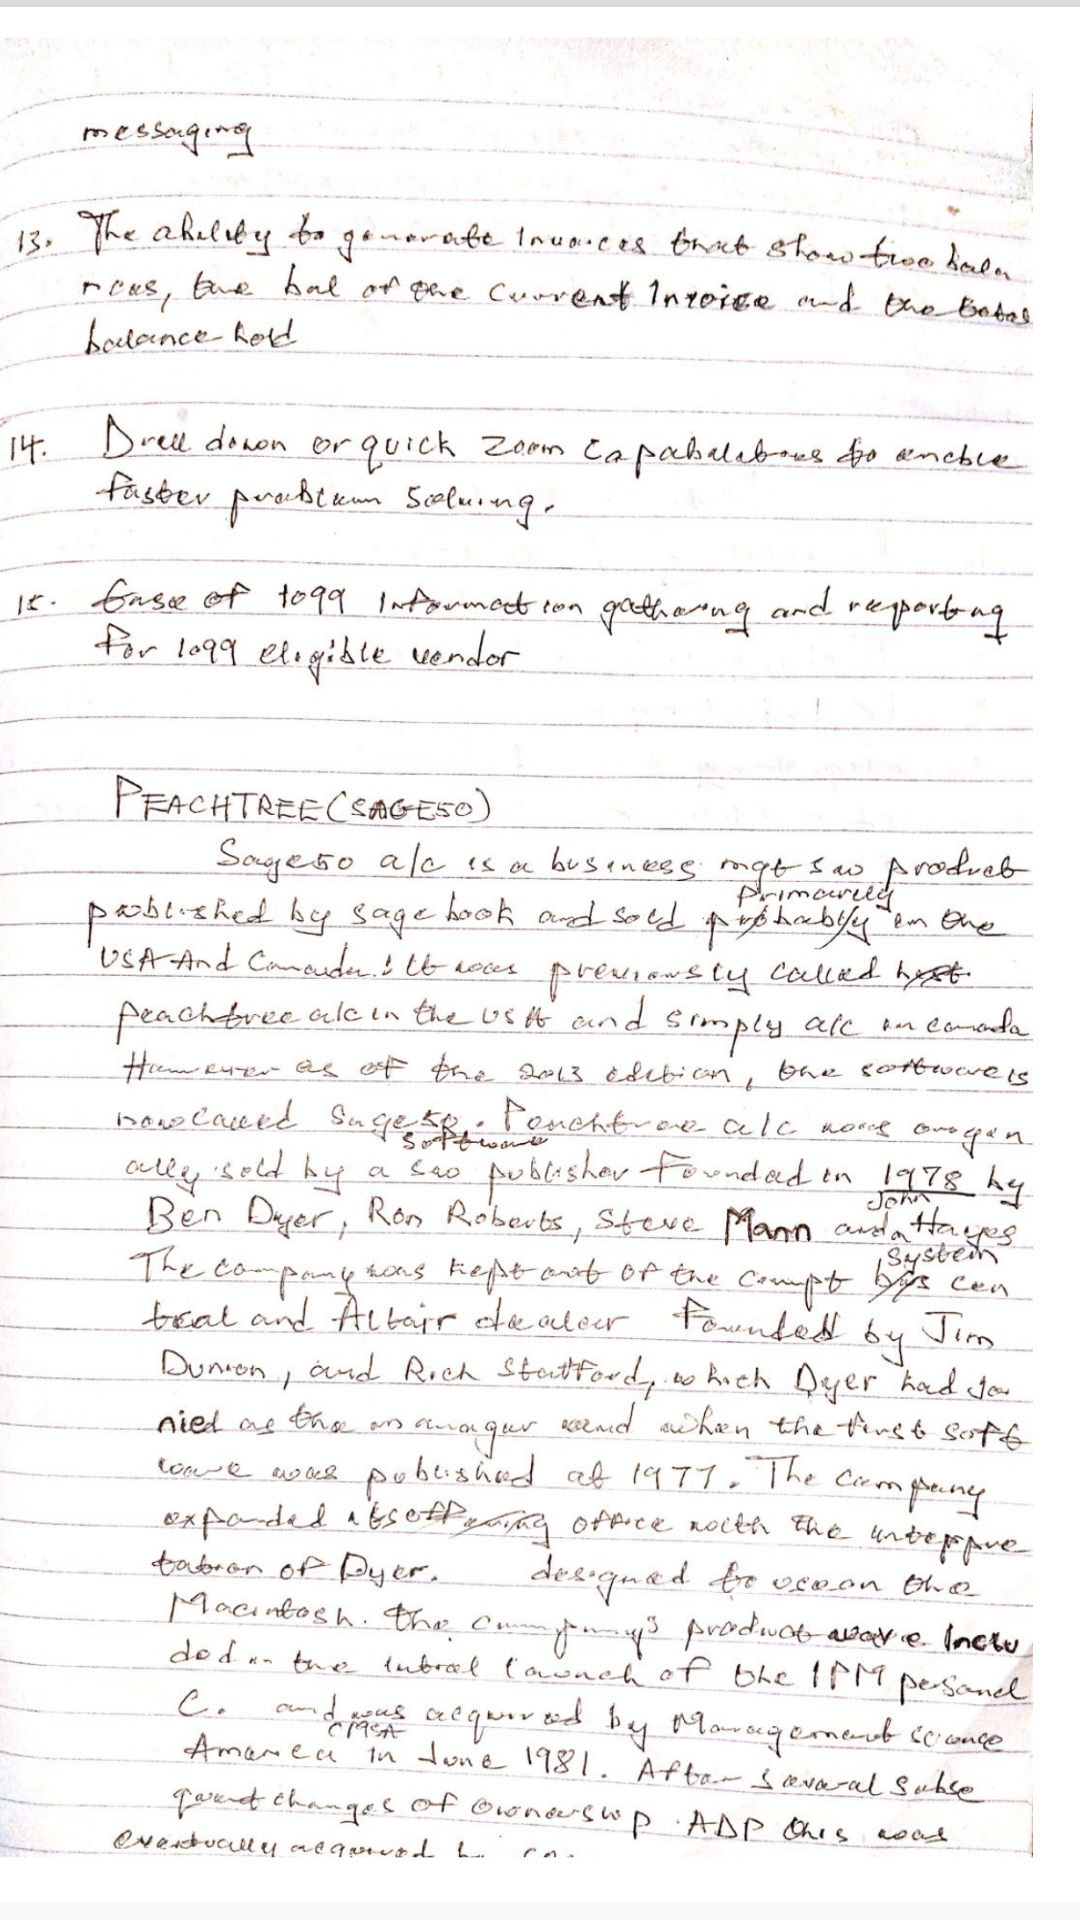 messaging
13. The ability to generate Invoices that show two bala
nces, the bal of the current Invoice and the total
balance hold
14. Drill down or quick zoom capabilities to enable
faster problem solving.
15. Ease of 1099 Information gathering and reporting
for 1099 eligible vendor
PEACHTREE (SAGE50)
Sage50 a/c is a business mgt s/w product
published by sage book and sold primarily in the
USA And Canada. It was previously called
peachtree a/c in the USA and simply a/c in canada
However as of the 2013 edition, the software is
now called Sage50. Peachtree a/c was origin
ally sold by a software publisher founded in 1978 by
Ben Dyer, Ron Roberts, Steve Mann and John Hayes
The company was kept out of the compt system cen
tral and Altair dealer Founded by Jim
Dunion, and Rich Stafford, which Dyer had jo
nied as the manager and when the first soft
ware was published at 1977. The company
expanded its office with the interpre
tation of Dyer. designed to use on the
Macintosh. the company's product were Inclu
ded in the initial launch of the IPM personel
C. and was acquired by Management science
America in June 1981. After several subse
quent changes of ownership ADP this was
eventually acquired